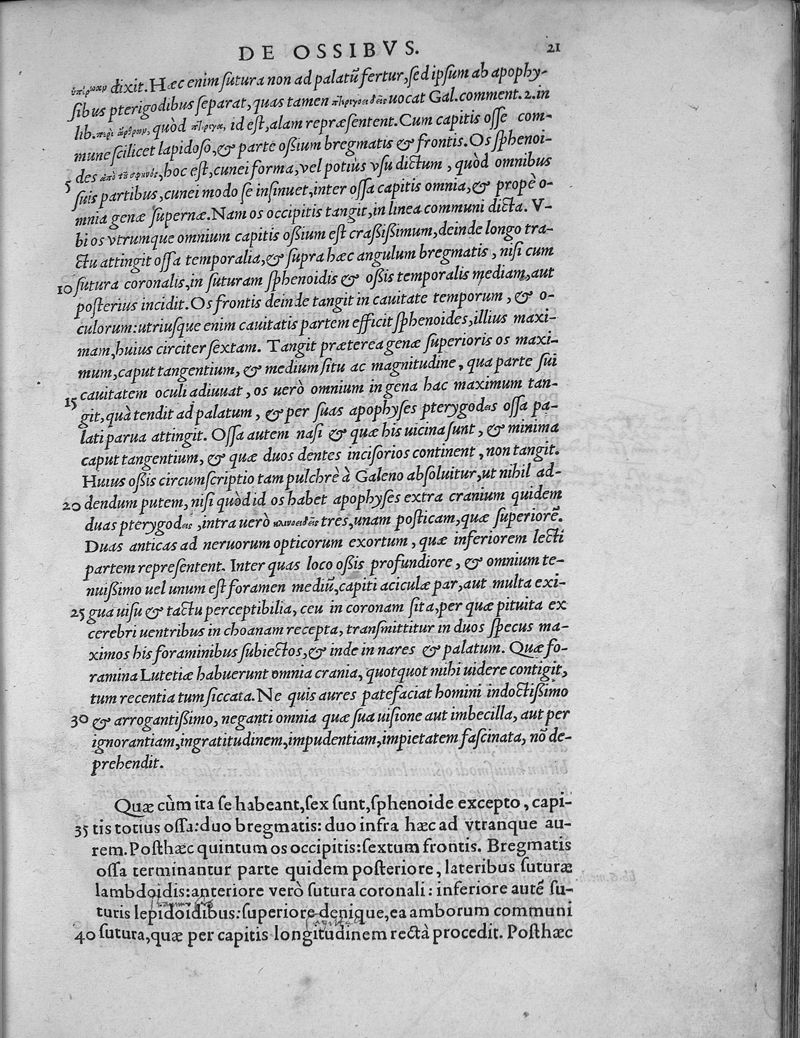 DE OSSIBVS. 21
dixit. Hæc enim sutura non ad palatũ fertur, sed ipsum ab apophy-
sibus pterigodibus separat, quas tamen uocat Gal. comment. 2. in
lib. quòd id est, alam repræsentent. Cum capitis osse com-
mune scilicet lapidoso, & parte oßium bregmatis & frontis. Os sphenoi-
5 des hoc est, cunei forma, vel potius vsu dictum, quòd omnibus
suis partibus, cunei modo se insinuet, inter ossa capitis omnia, & propè o-
mnia genæ supernæ. Nam os occipitis tangit, in linea communi dicta. V-
bi os vtrumque omnium capitis oßium est craßißimum, deinde longo tra-
ctu attingit ossa temporalia, & supra hæc angulum bregmatis, nisi cum
10 sutura coronalis, in suturam sphenoidis & oßis temporalis mediam, aut
posterius incidit. Os frontis deinde tangit in cauitate temporum, & o-
culorum: utriusque enim cauitatis partem efficit sphenoides, illius maxi-
mam, huius circiter sextam. Tangit præterea genæ superioris os maxi-
mum, caput tangentium, & medium situ ac magnitudine, qua parte sui
15 cauitatem oculi adiuuat, os uerò omnium in gena hac maximum tan-
git, quà tendit ad palatum, & per suas apophyses pterygodas ossa pa-
lati parua attingit. Ossa autem nasi & quæ his uicina sunt, & minima
caput tangentium, & quæ duos dentes incisorios continent, non tangit.
Huius oßis circumscriptio tam pulchrè à Galeno absoluitur, ut nihil ad-
20 dendum putem, nisi quòd id os habet apophyses extra cranium quidem
duas pterygodas, intra uerò tres, unam posticam, quæ superiorẽ.
Duas anticas ad neruorum opticorum exortum, quæ inferiorem lecti
partem repræsentent. Inter quas loco oßis profundiore, & omnium te-
nuißimo uel unum est foramen mediũ, capiti aciculæ par, aut multa exi-
25 gua uisu & tactu perceptibilia, ceu in coronam sita, per quæ pituita ex
cerebri uentribus in choanam recepta, transmittitur in duos specus ma-
ximos his foraminibus subiectos, & inde in nares & palatum. Quæ fo-
ramina Lutetiæ habuerunt omnia crania, quotquot mihi uidere contigit,
tum recentia tum siccata. Ne quis aures patefaciat homini indoctißimo
30 & arrogantißimo, neganti omnia quæ sua uisione aut imbecilla, aut per
ignorantiam, ingratitudinem, impudentiam, impietatem fascinata, nõ de-
prehendit.
Quæ cùm ita se habeant, sex sunt, sphenoide excepto, capi-
35 tis totius ossa: duo bregmatis: duo infra hæc ad vtranque au-
rem. Posthæc quintum os occipitis: sextum frontis. Bregmatis
ossa terminantur parte quidem posteriore, lateribus suturæ
lambdoidis: anteriore verò sutura coronali: inferiore autẽ su-
turis lepidoidibus: superiore denique, ea amborum communi
40 sutura, quæ per capitis longitudinem rectà procedit. Posthæc